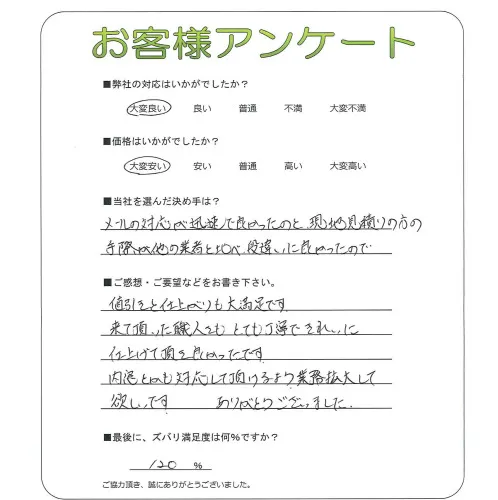 お客様アンケート
■弊社の対応はいかがでしたか？
大変良い 良い 普通 不満 大変不満
■価格はいかがでしたか？
大変安い 安い 普通 高い 大変高い
■当社を選んだ決め手は？
メールの対応が迅速で良かったのと、現地見積りの方の
手際が他の業者と比べ、段違いに良かったので
■ご感想・ご要望などをお書き下さい。
値引きと仕上がりも大満足です
来て頂いた職人さんも とても丁寧できれいに
仕上げて頂き良かったです
内湿とかも対応して頂けるよう業務拡大して
欲しいです ありがとうございました.
■最後に、ズバリ満足度は何％ですか？
120 ％
ご協力頂き、誠にありがとうございました。